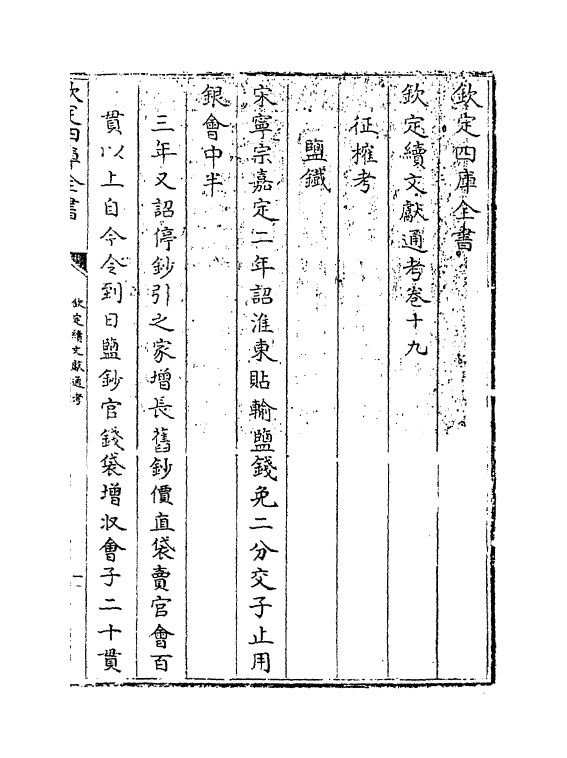 欽定四庫全書
欽定續文獻通考卷十九
征榷考
鹽鐵
宋寧宗嘉定二年詔淮東貼輸鹽錢免二分交子止用
銀會中半
三年又詔停鈔引之家增長舊鈔價直袋賣官會百
貫以上自今令到日鹽鈔官錢袋增收會子二十貫
欽定四庫全書
欽定續文獻通考
一